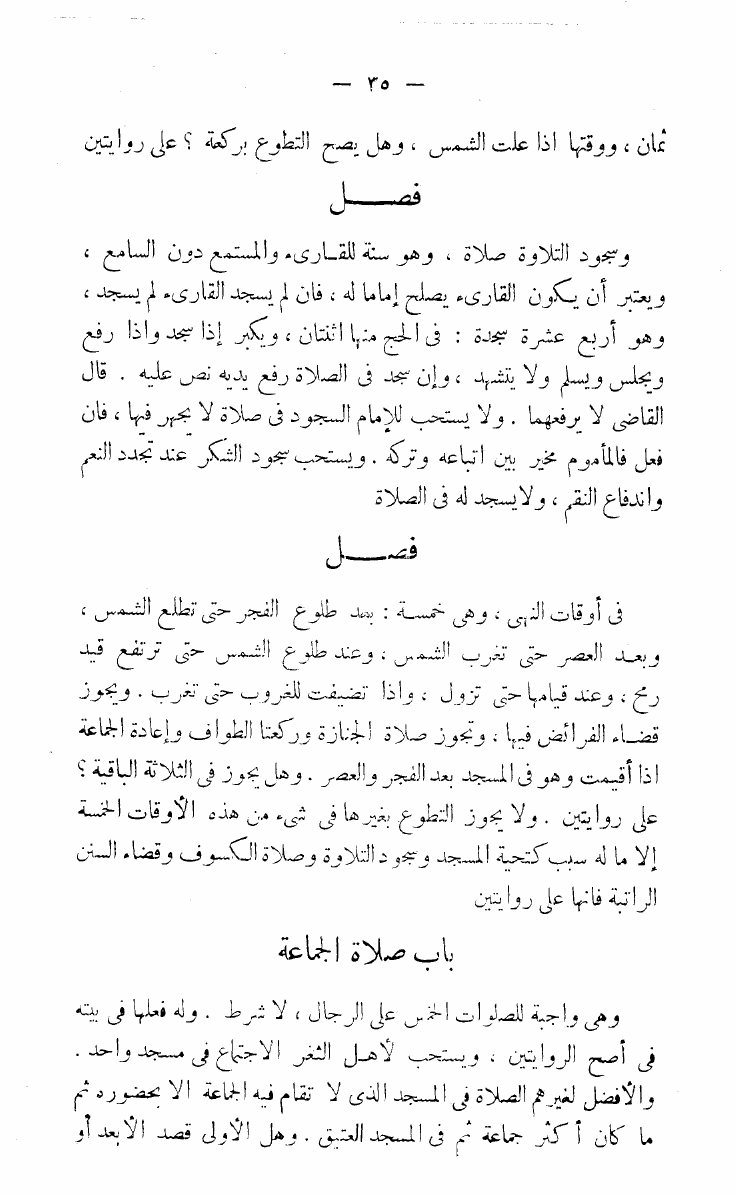 — ٣٥ —
ثمان ، ووقتها اذا علت الشمس ، وهل يصح التطوع بركعة ؟ على روايتين
فصـــل
وسجود التلاوة صلاة ، وهو سنة للقـارىء والمستمع دون السامع ،
ويعتبر أن يكون القارىء يصلح إماما له ، فان لم يسجد القارىء لم يسجد ،
وهو أربع عشرة سجدة : فى الحج منها اثنتان ، ويكبر إذا سجد واذا رفع
ويجلس ويسلم ولا يتشهد ، وإن سجد فى الصلاة رفع يديه نص عليه . قال
القاضى لا يرفعهما . ولا يستحب للإمام السجود فى صلاة لا يجهر فيها ، فان
فعل فالمأموم مخير بين اتباعه وتركه . ويستحب سجود الشكر عند تجدد النعم
واندفاع النقم ، ولا يسجد له فى الصلاة
فصـــل
فى أوقات النهى ، وهى خمسـة : بعد طلوع الفجر حتى تطلع الشمس ،
وبعـد العصر حتى تغرب الشمس ، وعند طلوع الشمس حتى ترتفع قيد
رمح ، وعند قيامها حتى تزول ، واذا تضيفت للغروب حتى تغرب . ويجوز
قضـاء الفرائض فيها ، وتجوز صلاة الجنازة وركعتا الطواف وإعادة الجماعة
اذا أقيمت وهو فى المسجد بعد الفجر والعصر . وهل يجوز فى الثلاثة الباقية ؟
على روايتين . ولا يجوز التطوع بغيرها فى شىء من هذه الأوقات الخمسة
إلا ما له سبب كتحية المسجد وسجود التلاوة وصلاة الكسوف وقضاء السنن
الراتبة فانها على روايتين
باب صلاة الجماعة
وهى واجبة للصلوات الخمس على الرجال ، لا شرط . وله فعلها فى بيته
فى أصح الروايتين ، ويستحب لأهـل الثغر الاجتماع فى مسجد واحد .
والأفضل لغيرهم الصلاة فى المسجد الذى لا تقام فيه الجماعة الا بحضوره ثم
ما كان أكثر جماعة ثم فى المسجد العتيق . وهل الأولى قصد الأبعد أو